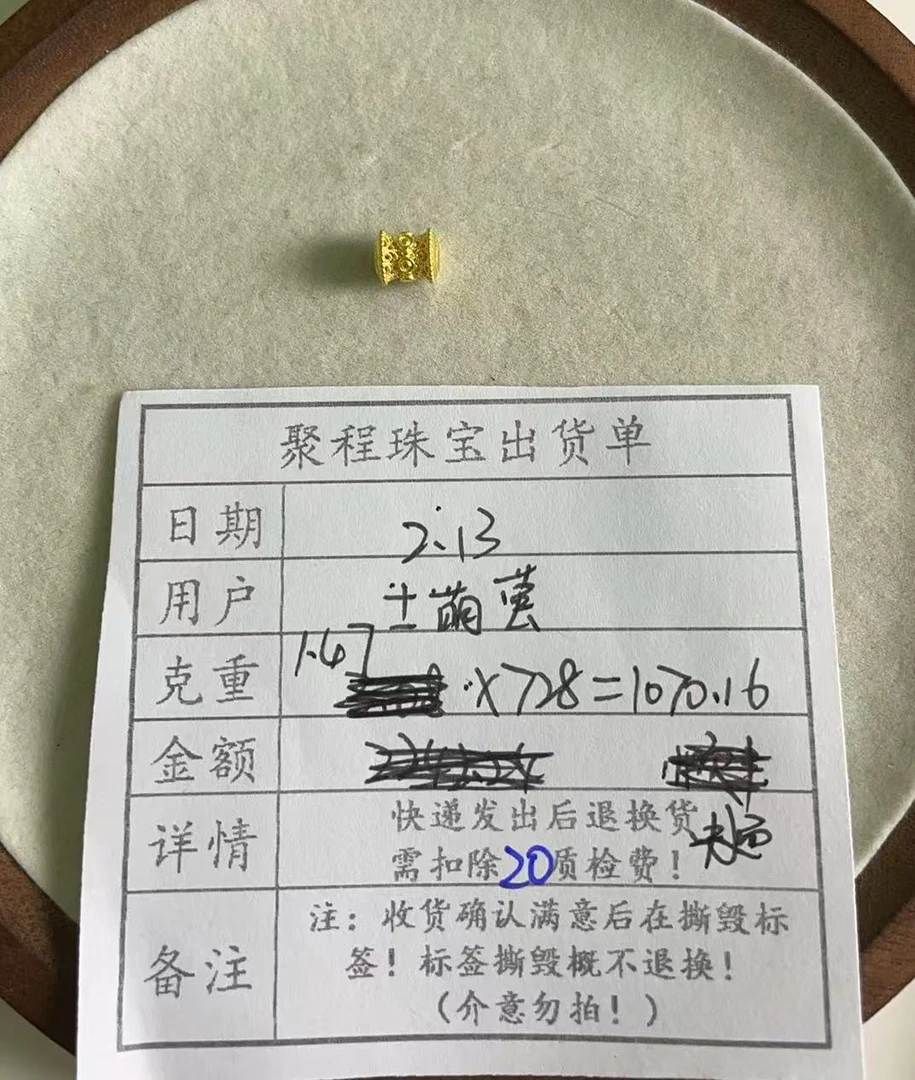 聚程珠宝出货单
日期 2.13
用户 士萌萱
克重 1.47 ×728=1070.16
金额
详情 快递发出后退换货
需扣除20质检费!
备注 注:收货确认满意后在撕毁标
签!标签撕毁概不退换!
(介意勿拍!)